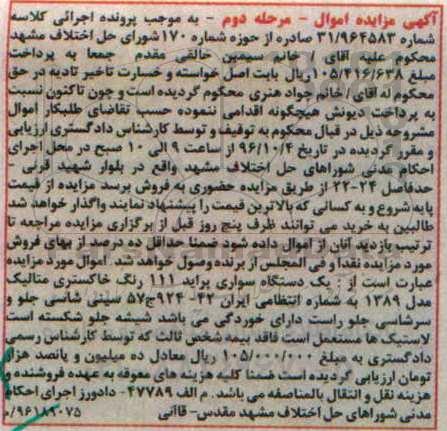 آگهی مزایده اموال - مرحله دوم - به موجب پرونده اجرائی کلاسه
شماره ۳۱/۹۶۴۵۸۳ صادره از حوزه شماره ۱۷۰ شورای حل اختلاف مشهد
محکوم علیه آقای / خانم سیمین خالقی مقدم جمعا به پرداخت
مبلغ ۱۰۵/۴۱۶/۶۳۸ ریال بابت اصل خواسته و خسارت تاخیر تادیه در حق
محکوم له آقای / خانم جواد هنری محکوم گردیده است و چون تاکنون نسبت
به پرداخت دیونش هیچگونه اقدامی ننموده حسب تقاضای طلبکار اموال
مشروحه ذیل در قبال محکوم به توقیف و توسط کارشناس دادگستری ارزیابی
و مقرر گردیده در تاریخ ۹۶/۱۰/۴ از ساعت ۹ الی ۱۰ صبح در محل اجرای
احکام مدنی شوراهای حل اختلاف مشهد واقع در بلوار شهید قرنی -
حدفاصل ۲۴-۲۲ از طریق مزایده حضوری به فروش برسد مزایده از قیمت
پایه شروع و به کسانی که بالاترین قیمت را پیشنهاد نمایند واگذار خواهد شد
طالبین به خرید می توانند ظرف پنج روز قبل از برگزاری مزایده مراجعه تا
ترتیب بازدید آنان از اموال داده شود ضمنا حداقل ده درصد از بهای فروش
مورد مزایده نقدا و فی المجلس از برنده وصول خواهد شد. اموال مورد مزایده
عبارت است از : یک دستگاه سواری پراید ۱۱۱ رنگ خاکستری متالیک
مدل ۱۳۸۹ به شماره انتظامی ایران ۴۲- ۹۲۴ج۵۷ سینی شاسی جلو و
سرشاسی جلو راست دارای خوردگی می باشد شیشه جلو شکسته است
لاستیک ها مستعمل است فاقد بیمه شخص ثالث که توسط کارشناس رسمی
دادگستری به مبلغ ۱۰۵/۰۰۰/۰۰۰ ریال معادل ده میلیون و پانصد هزار
تومان ارزیابی گردیده است ضمنا کلیه هزینه های معوقه به عهده فروشنده و
هزینه نقل و انتقال بالمناصفه می باشد. م الف ۴۷۷۸۹- دادورز اجرای احکام
مدنی شوراهای حل اختلاف مشهد مقدس- قاآنی
۹۶۱۸۹۰۷۵/م